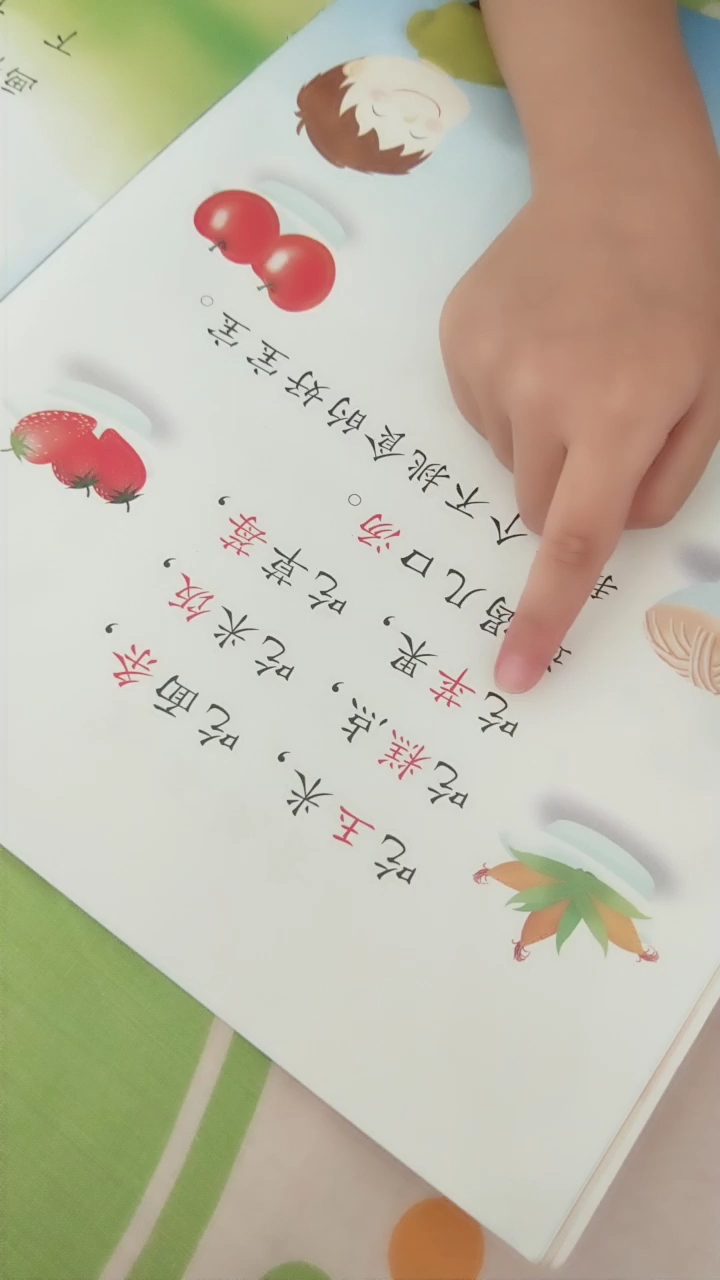 吃玉米，吃面条，
吃糕点，吃米饭，
吃苹果，吃草莓，
喝几口汤。
个不挑食的好宝宝。
下
画